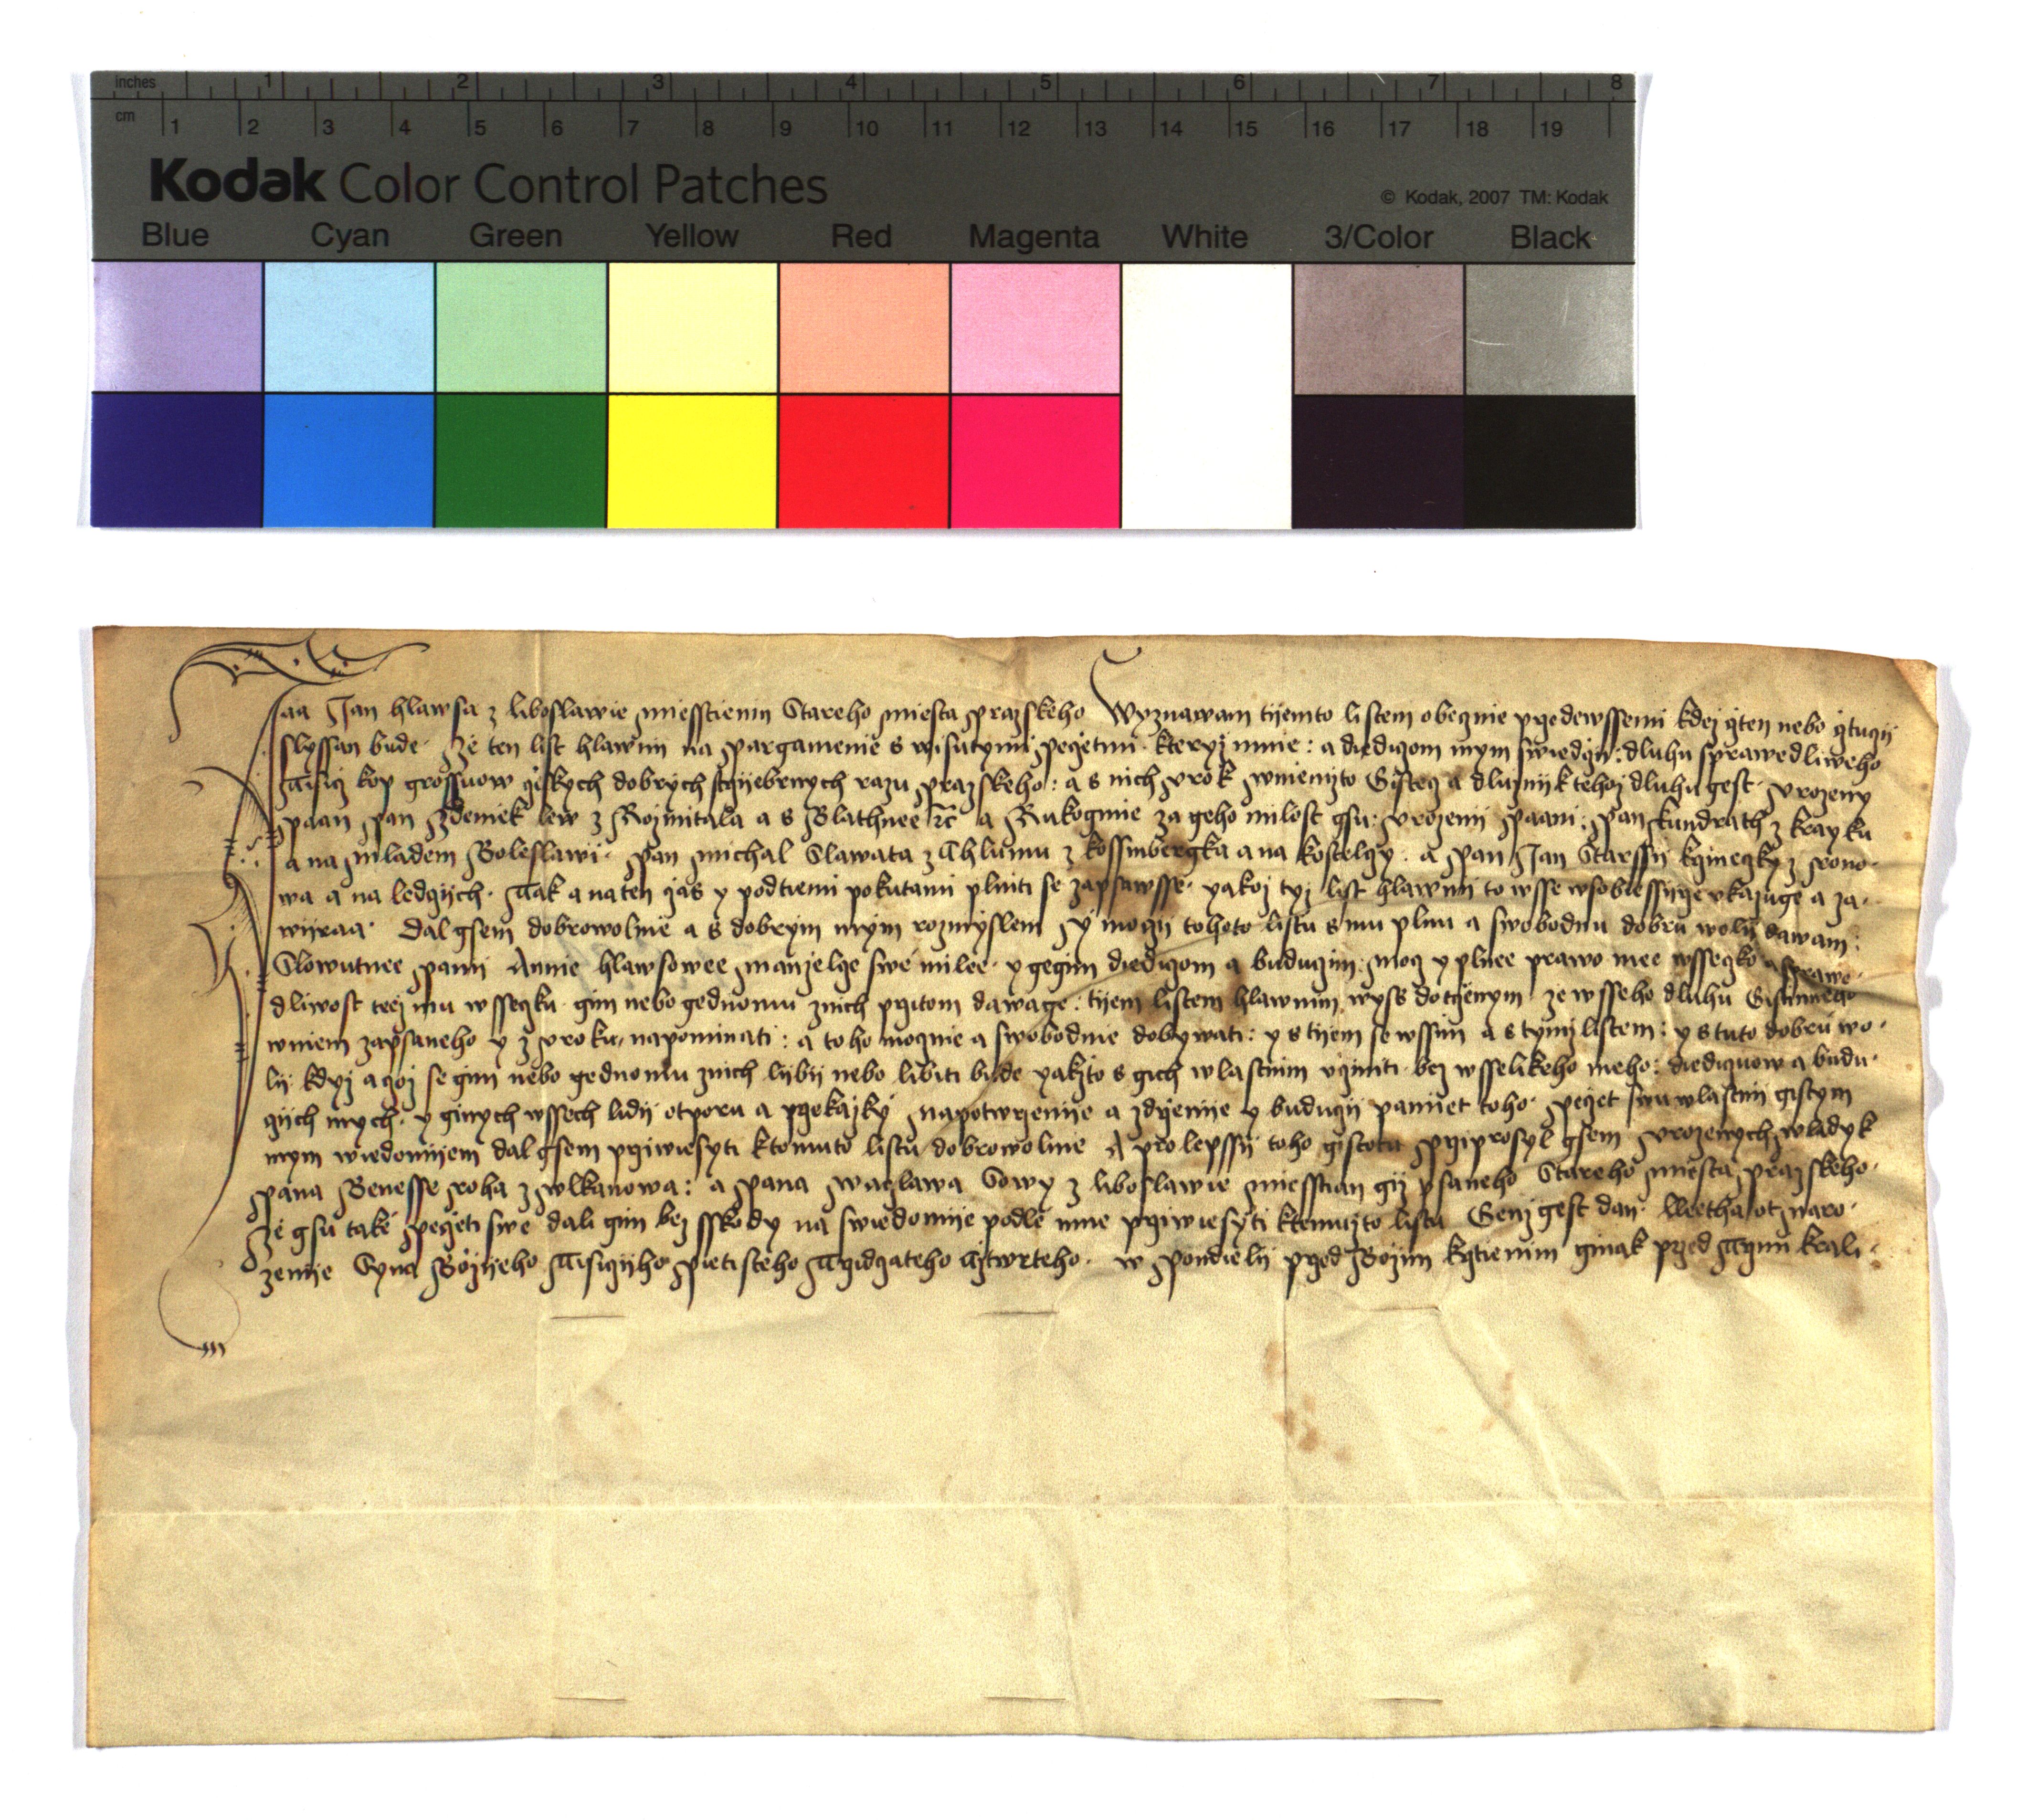 inches 1 2 3 4 5 6 7 8
cm 1 2 3 4 5 6 7 8 9 10 11 12 13 14 15 16 17 18 19
Kodak Color Control Patches
© Kodak, 2007 TM: Kodak
Blue Cyan Green Yellow Red Magenta White 3/Color Black
Jaa Jan hlawsa z liboslawie miesstienin Stareho miesta prazskeho Wyznawam tijemto listem obecznie przedewssemi kdez cten nebo cztuczij
slyssan bude. Ze ten list hlawnij na pargamenie s wisutymi peczetmi kteryz mnie: a diediczom mym swiedczij: dluhu sprawedliweho
Tisicz kop grossuow czeskych dobrych strzijebrnych razu prazskeho: a s nich vrok wniemzto Gistecz a dluznijk tehoz dluhu gest. Vrozeny
paan pan Zdeniek lew z Rozmitala a s Blathnee etc a Rukogmie za geho milost gsu: vrozenij paani: pan kundrath z krayku
a na mladem Boleslawi. pan michal Slawata z Chlumu z kossmbergka a na kosteltzy. a pan Jan Starssij krzineczky z rono-
wa a na ledczijch. Tak a na ten czas y pod tiemi pokutami plniti se zapsawsse. yakoz tyz list hlawnij to wsse wsobie ssijrze vkazuge a za-
wijraa. Dal gsem dobrowolnie a s dobrym mym rozmyslem y moczij tohoto listu s mu plnu a swobodnu dobru wolij dawam:
Slowutnee panij Annie hlawsowee manzelcze swe milee. y gegim diediczom a buduczim: mocz y plnee prawo mee wsseczko a sprawe-
dliwost teez mu wsseczku. gim nebo gednomu znich przitom dawage: tijem listem hlawnim wyss dotczenym ze wsseho dluhu Gistinneho
wniem zapsaneho y z vroku, napominati: a toho mocznie a swobodnie dobywati: y s tijem se wssim a s tymz listem: y s tuto dobru wo-
lij kdyz a czoz se gim nebo gednomu znich lijbij nebo libiti bude yakzto s gich wlastnim vcziniti. bez wsselikeho meho: diediczuow a budu-
czijch mych. y ginych wssech lidij otporu a przekazky napotwrzenije a zdrzenije y buduczij pamiet toho. peczet swu wlastnij gistym
mym wiedomijem dal gsem prziwiesyti ktomuto listu dobrowolnie A pro lepssij toho gistotu prziprosyl gsem vrozenych wladyk
pana Benesse roha z wlkanowa: a pana waczlawa Sowy z liboslawie miesstian giz psaneho Stareho miesta prazskeho.
Ze gsu take peczeti swe dali gim bez sskody na swiedomije podle mne prziwiesyti ktemuzto listu Genz gest dan. Leetha ot naro-
zenije Syna Bozijeho Tisiczijho pietisteho Trzidczateho Cztwrteho. w pondielij przed Bozim krztienim ginak przed Trzmi krali.